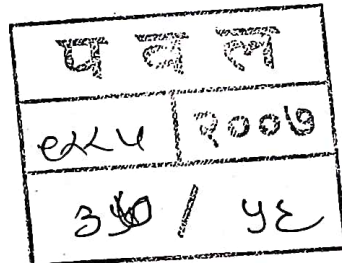 प व ल
९८८५ २००७
/ ५६